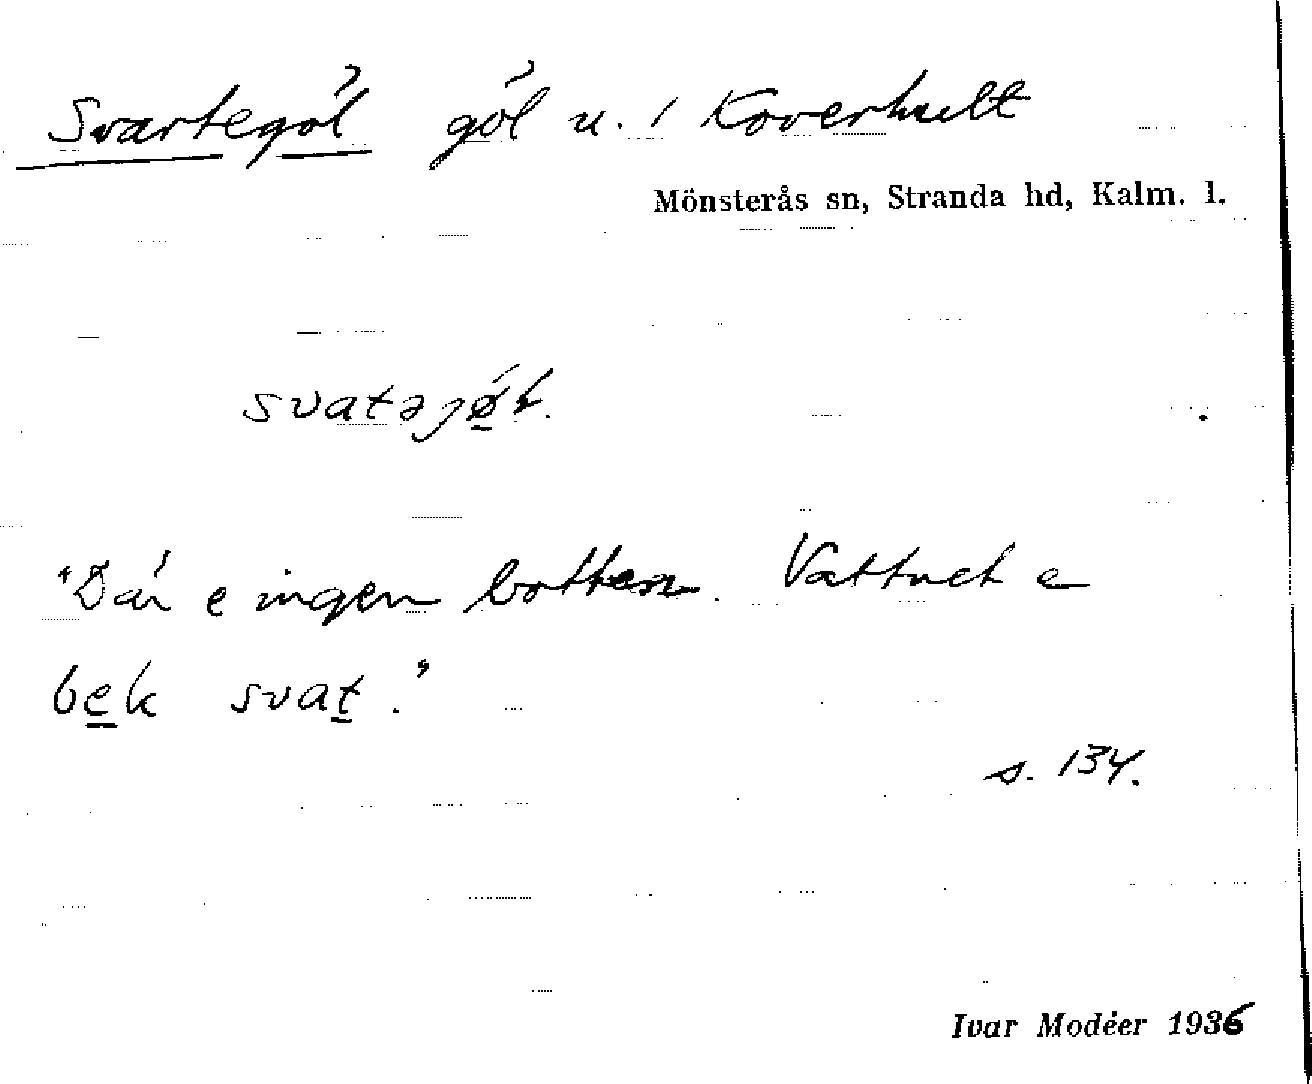 Svartegöl göl u. 1 Koverhult
Mönsterås sn, Stranda hd, Kalm. l.
svatəjøl.
"Där e ingen botten. Vattnet e
bek svat."
s. 134.
Ivar Modéer 1936